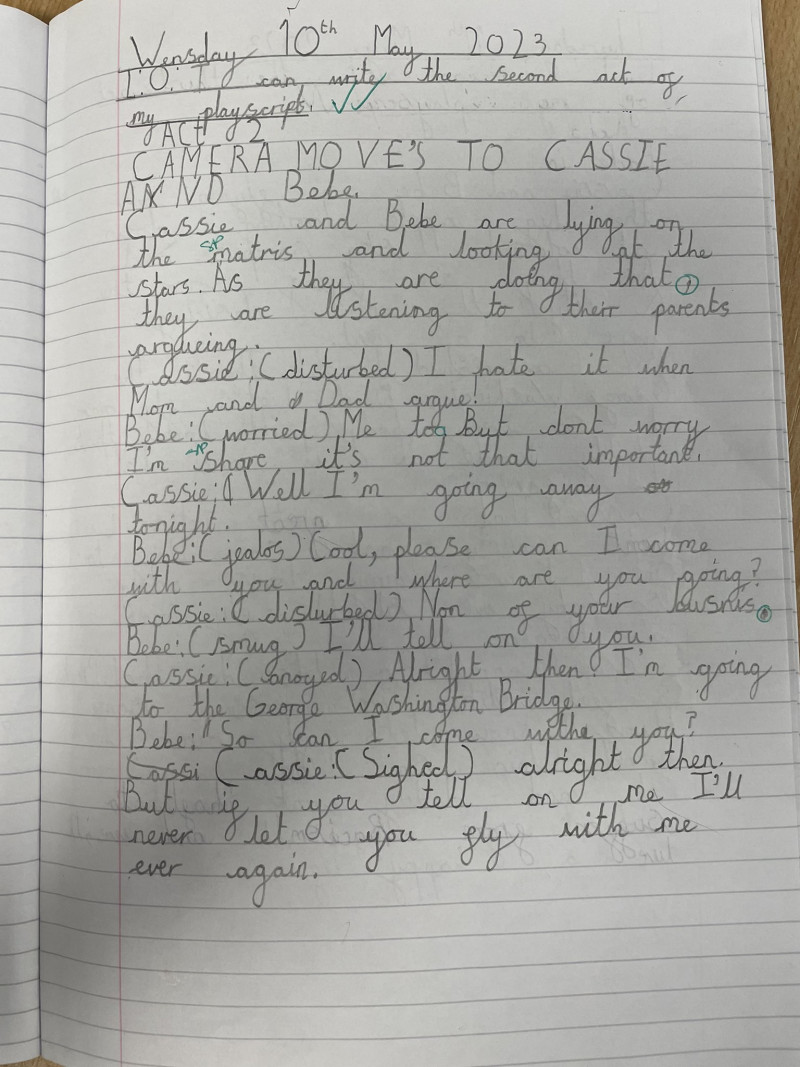 Wensday 10th May 2023
I.O. I can write the second act of
my playscript.
ACt 2
CAMERA MOVE'S TO CASSIE
AND Bebe.
Cassie and Bebe are lying on
the matris and looking at the
stars. As they are doing that,
they are listening to their parents
argueing.
Cassie:(disturbed) I hate it when
Mom and Dad argue!
Bebe:(worried) Me too But dont worry
I'm shore it's not that important.
Cassie:( Well I'm going away
tonight.
Bebe:(jealos) Cool, please can I come
with you and where are you going?
Cassie:(disturbed) Non of your busnis.
Bebe:(smug) I'll tell on you.
Cassie:(anoyed) Alright then! I'm going
to the George Washington Bridge.
Bebe:"So can I come withe you?
Cassi Cassie:(Sighed) alright then.
But if you tell on me I'll
never let you fly with me
ever again.